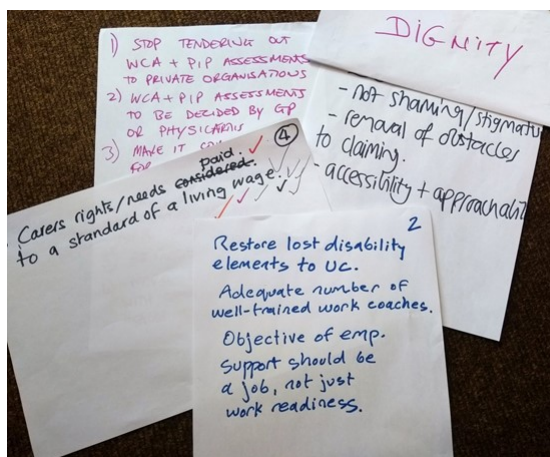 1) STOP TENDERING OUT
WCA + PIP ASSESSMENTS
TO PRIVATE ORGANISATIONS
2) WCA + PIP ASSESSMENTS
TO BE DECIDED BY GP
OR PHYSICIANS
3) MAKE IT
FOR
DIGNITY
- not shaming/stigmatis
- removal of obstacles
to claiming.
- accessibility + approachabi
4
paid.
Carers rights/needs considered.
to a standard of a living wage.
2
Restore lost disability
elements to UC.
Adequate number of
well-trained work coaches.
Objective of emp.
Support should be
a job, not just
work readiness.